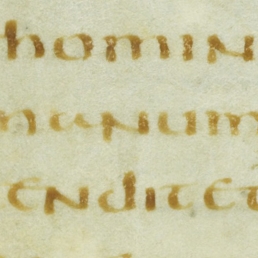 homin
manum
endit et